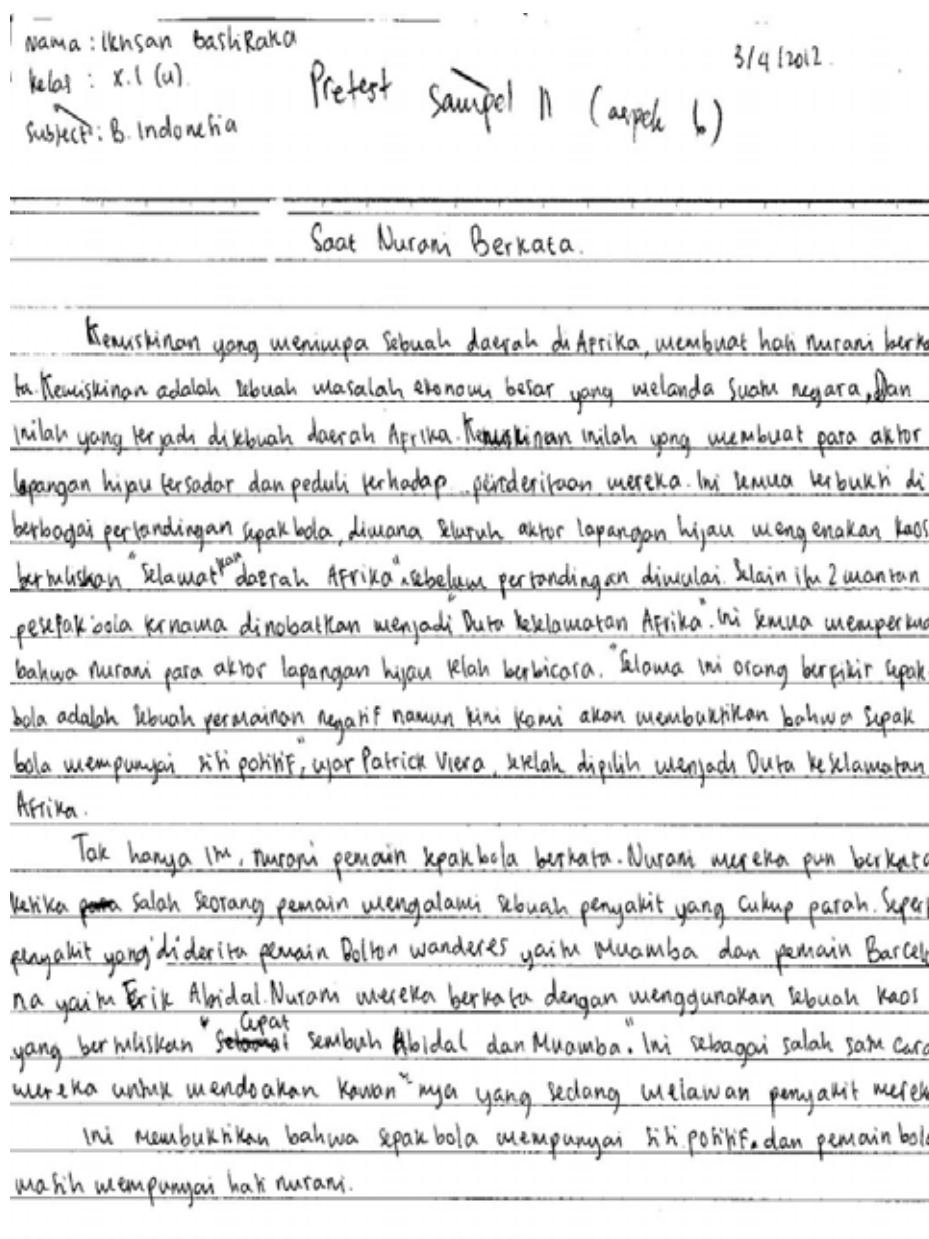 Nama : Ikhsan Bashiraka
Kelas : X.1 (u)
Subject : B. Indonesia
3/4/2012.
Pretest Sampel 11 (aspek b)
Saat Nurani Berkata.
Kemiskinan yang menimpa sebuah daerah di Afrika, membuat hati nurani berka
ta. Kemiskinan adalah sebuah masalah ekonomi besar yang melanda suatu negara, Dan
inilah yang terjadi disebuah daerah Afrika. Kemiskinan inilah yang membuat para aktor
lapangan hijau tersadar dan peduli terhadap penderitaan mereka. Ini semua terbukti di
berbagai pertandingan sepak bola, dimana seluruh aktor lapangan hijau mengenakan kaos
bertuliskan "Selamatkan daerah Afrika". sebelum pertandingan dimulai. Selain itu 2 mantan
pesepak bola ternama dinobatkan menjadi "Duta keselamatan Afrika". Ini semua memperkua
bahwa nurani para aktor lapangan hijau telah berbicara. "Selama ini orang berfikir sepak
bola adalah sebuah permainan negatif namun kini kami akan membuktikan bahwa sepak
bola mempunyai sisi positif", ujar Patrick Viera, setelah dipilih menjadi Duta keselamatan
Afrika.
Tak hanya itu, nurani pemain sepak bola berkata. Nurani mereka pun berkata
ketika para salah seorang pemain mengalami sebuah penyakit yang cukup parah. Seperti
penyakit yang diderita pemain Bolton wanderes yaitu Muamba dan pemain Barcelo
na yaitu Erik Abidal. Nurani mereka berkata dengan menggunakan sebuah kaos
yang bertuliskan "Cepat sembuh Abidal dan Muamba". Ini sebagai salah satu cara
mereka untuk mendoakan kawan"nya yang sedang melawan penyakit mereka
Ini membuktikan bahwa sepak bola mempunyai sisi positif. dan pemain bola
masih mempunyai hati nurani.